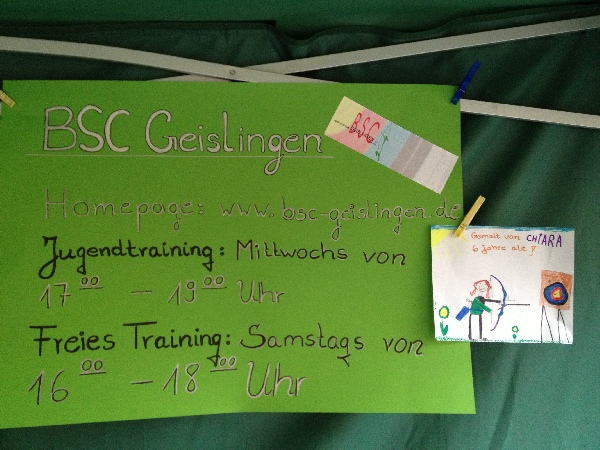 BSC Geislingen
BSC
Homepage: www.bsc-geislingen.de
Jugendtraining: Mittwochs von
17 00 - 19 00 Uhr
Freies Training: Samstags von
16 00 - 18 00 Uhr
Gemalt von CHIARA
6 Jahre alt!